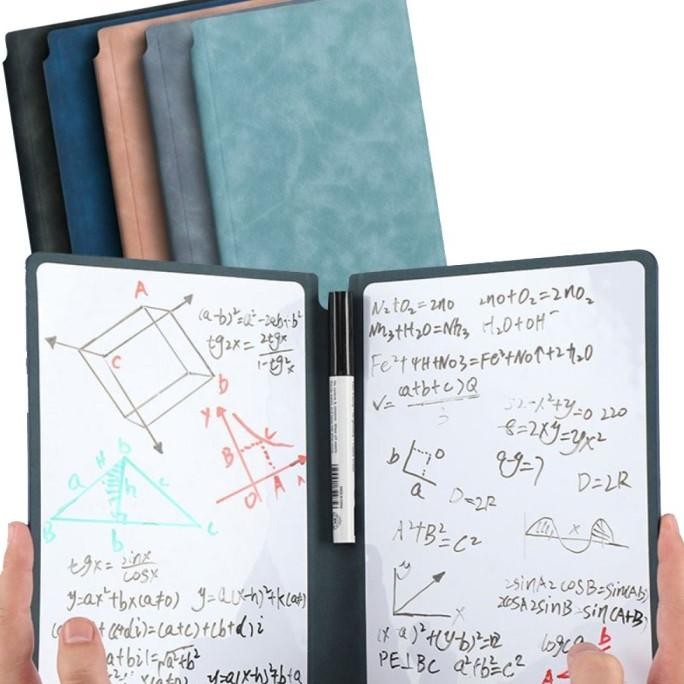 A
(a-b)²=a²-2ab+b²
tg2x = 2tgx
1-tg²x
C
b
y
B
C
O A x
b
H
a h c
B b C
tgx = sinx
cosx
y=ax²+bx(a≠0) y=a(x-h)²+k(a≠)
+(c+di)=(a+c)+(b+d)i
a+bi|=√a²+b²
y=a(x-h)²+b+a
N₂+O₂=2no 2no+O₂=2nO₂
Nh₃+H₂O=Nh₃ H₂O+OH⁻
Fe²+4H+NO₃=Fe³+NO↑+2h₂O
V= (a+b+c)Q
3
52-x²+y=0 220
8=2xy=yx²
9y=7
b O
a
D=2R
D=2R
A²+B²=C²
x
y
x
2sinA2cosB=sin(Ab)
2cosA2sinB=sin(A+B)
(x-a)²+(y-b)²=
PE⊥BC a²+b²=c²
logca
b
A